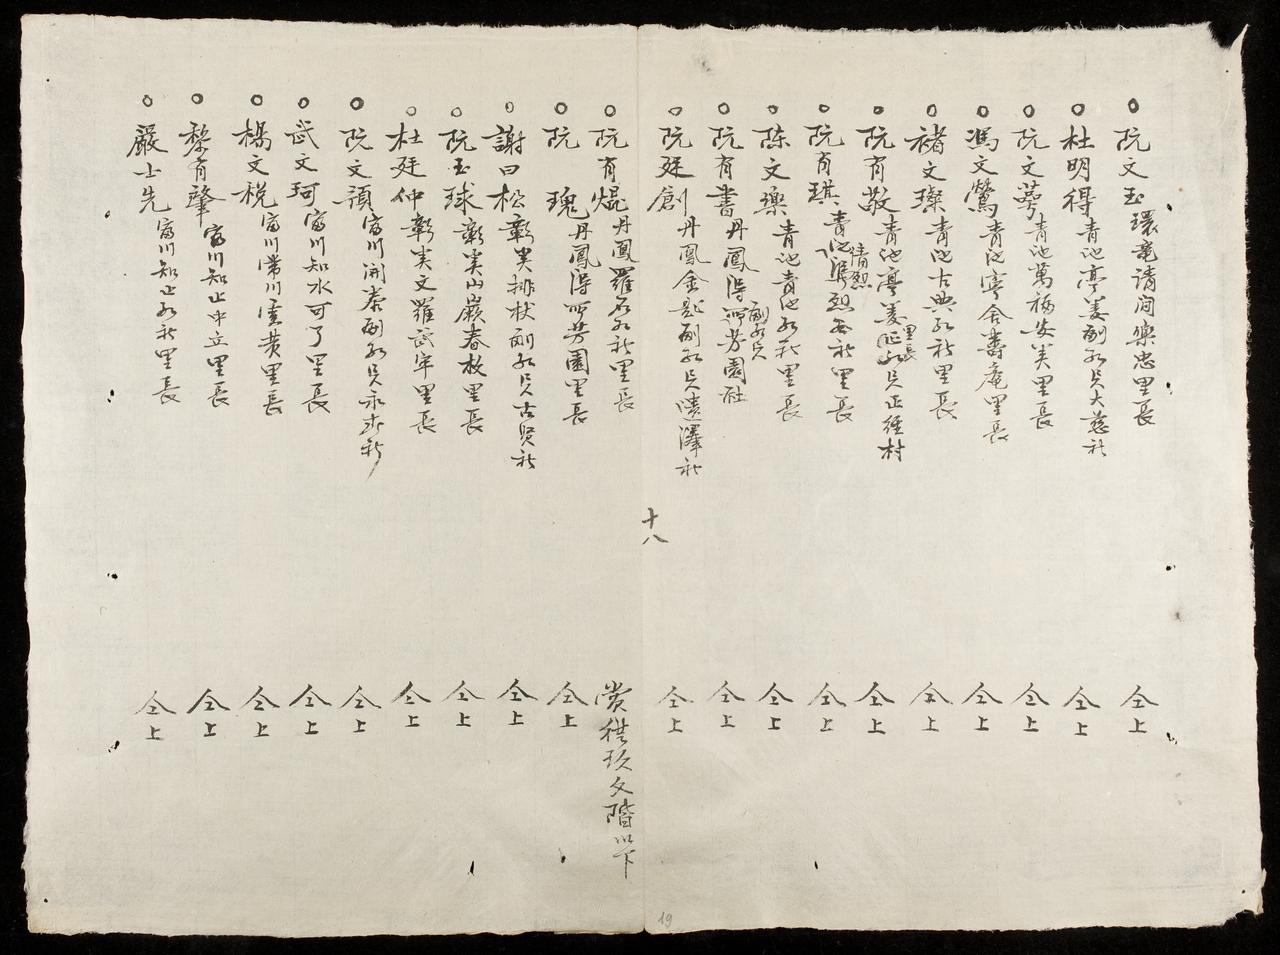 阮文玉環竜清润樂忠里長 仝上
杜明得青池亭美副社長大慈社 仝上
阮文蕚青池萬福安美里長 仝上
馮文鶯青池亭舍壽庵里長 仝上
褚文璨青池古典社里長 仝上
阮有敬青池亭美里長正經村 仝上
阮有琪青池清烈社里長 仝上
陈文樂青池青池社里長 仝上
阮有書丹鳳得所芳園社 仝上
阮廷創丹鳳金 澤社 仝上
十八
阮有焜丹鳳羅石社里長 赏 玖文階以下
阮瑰丹鳳得所芳園里長 仝上
謝曰松彰美排状副 古贤社 仝上
阮玉球彰美山巖春枚里長 仝上
杜廷仲彰美文羅武牢里長 仝上
阮文頊富川開泰副 永 社 仝上
武文珂富川知水可了里長 仝上
楊文税富川常川黄里長 仝上
黎有肇富川知止中立里長 仝上
嚴士先富川知止社里長 仝上
19